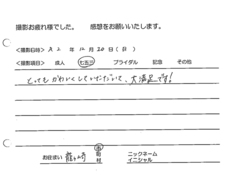 撮影お疲れ様でした。 感想をお願いいたします。
<撮影日時> R2年 12月 20日(日)
<撮影項目> 成人 七五三 ブライダル 記念 その他
とってもかわいくしていただいて、大満足です!
お住まい 龍ヶ崎 市 町 村 ニックネーム イニシャル